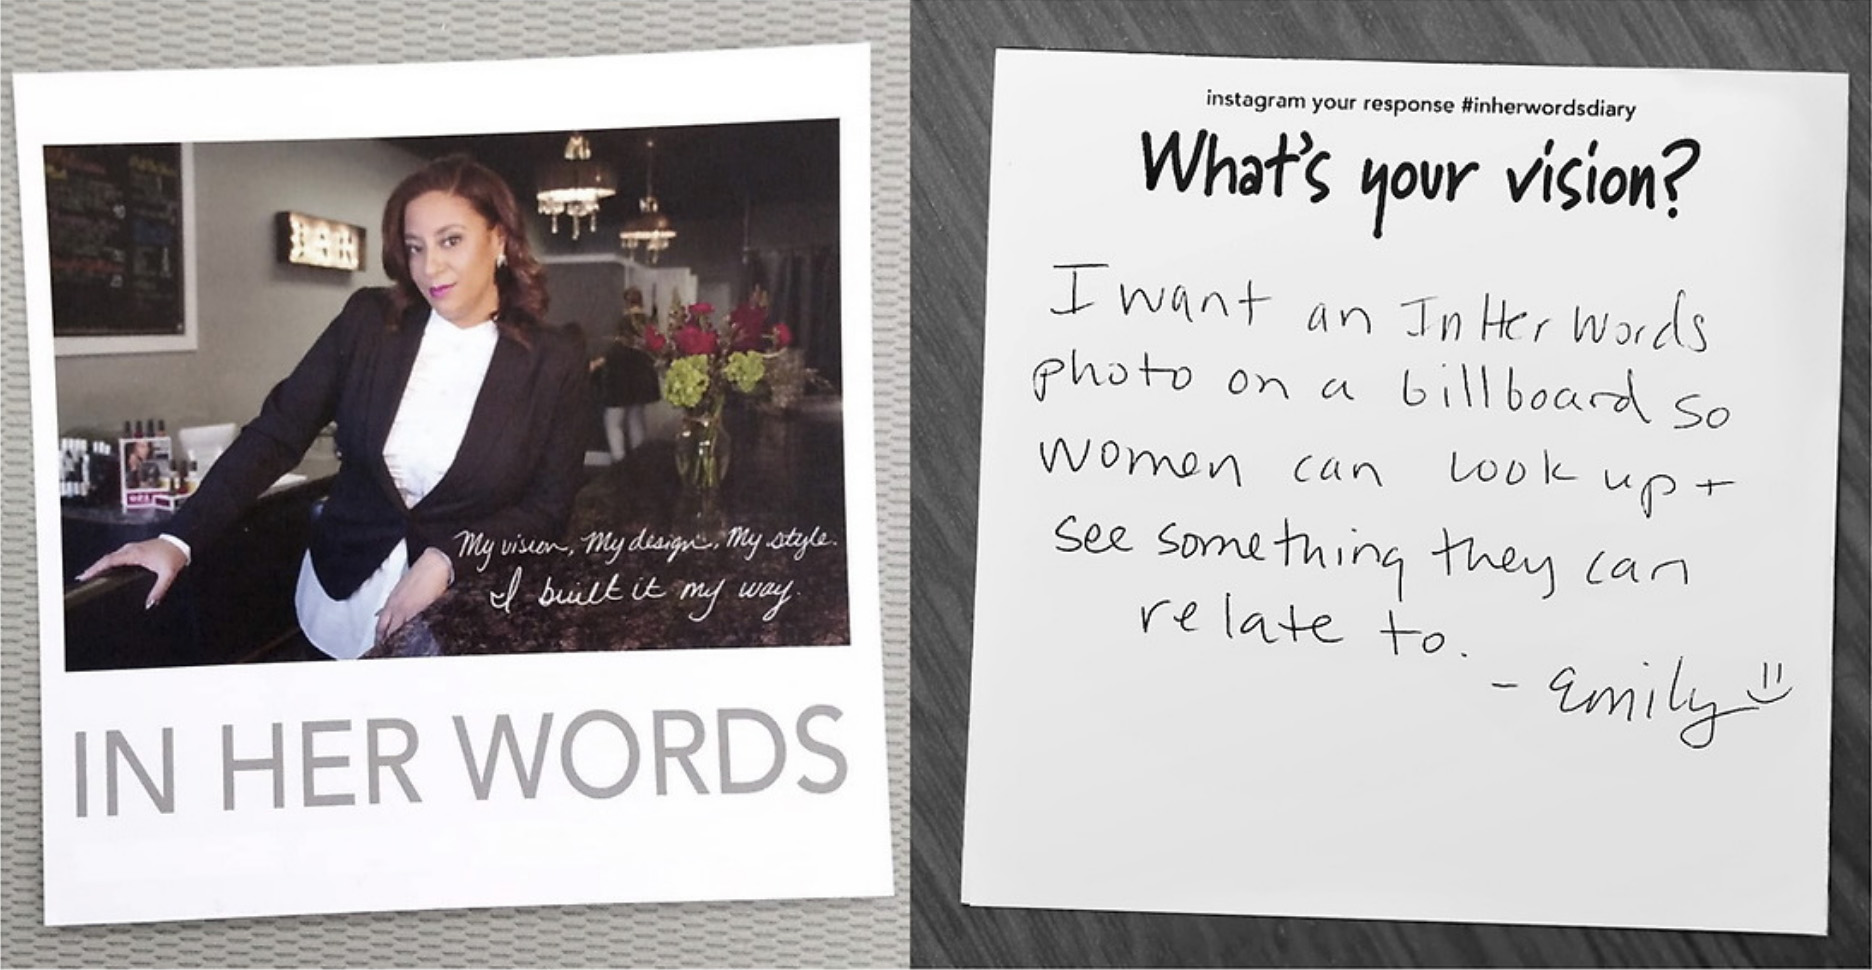 BAR
My vision, My design, My style.
I built it my way.
IN HER WORDS
instagram your response #inherwordsdiary
What's your vision?
I want an In Her Words
photo on a billboard so
women can look up +
see something they can
relate to.
- Emily